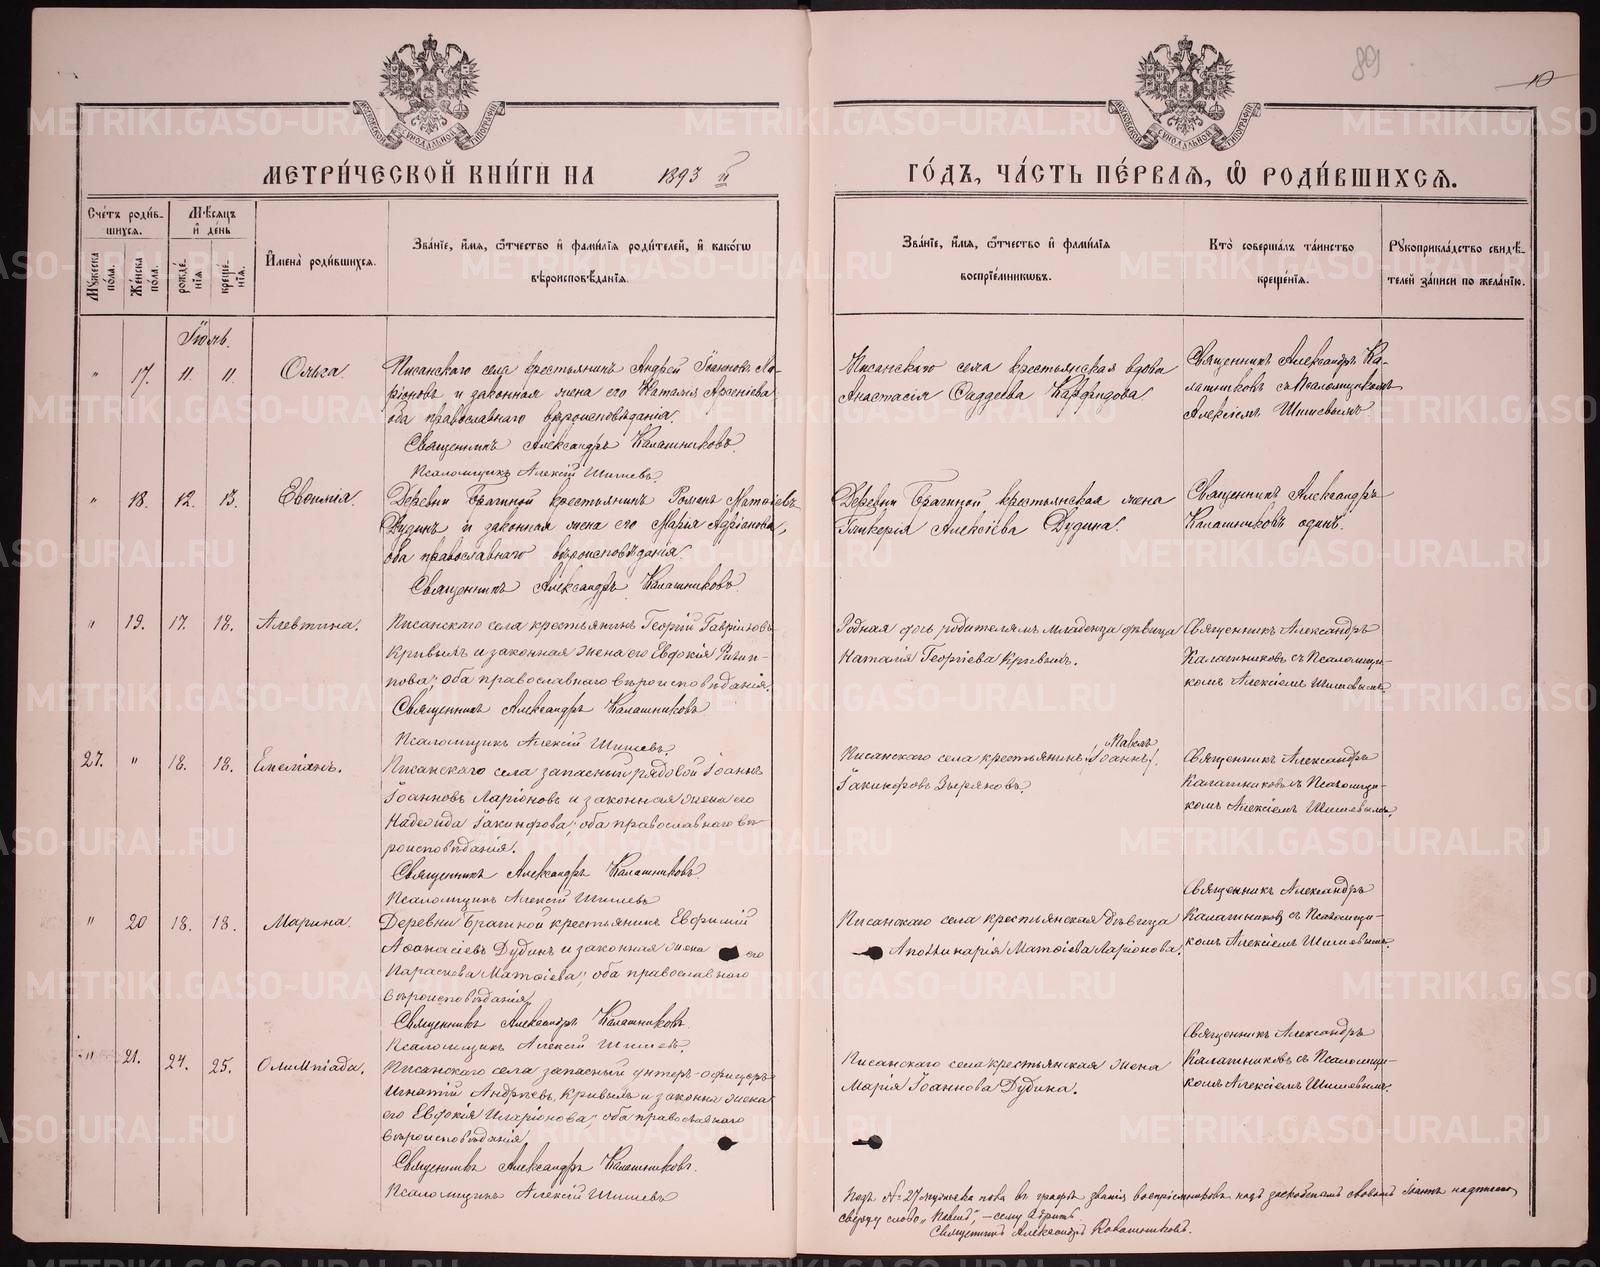 89
10
МОСКОВСКОЙ СѴНОДАЛЬНОЙ ТИПОГРАФІИ
МОСКОВСКОЙ СѴНОДАЛЬНОЙ ТИПОГРАФІИ
МЕТРИ́ЧЕСКОЙ КНИ́ГИ НА 1893 й
ГО́ДЪ, ЧА́СТЬ ПЕ́РВАЯ, Ѡ РОДИ́ВШИХСЯ.
Сче́тъ роди́в-
шихся.
Мѣ́сяцъ
и де́нь
Мꙋ́жеска
по́ла.
Же́нска
по́ла.
рожде́-
нія.
креще́-
нія.
Имена̀ роди́вшихся.
Зва́ніе, и́мя, ѻ́тчество и фами́лія роди́телей, и како́гѡ
вѣроисповѣ́данія.
Зва́ніе, и́мя, ѻ́тчество и фами́лія
воспріе́мникѡвъ.
Кто̀ соверша́лъ та́инство
креще́нія.
Рꙋкоприкла́дство свидѣ́-
телей за́писи по жела́нію.
Іюль.
" 17. 11. 11. Ольга.
Писанскаго села крестьянинъ Андрей Іоанновъ Ла-
ріоновъ и законная жена его Наталія Арсеніева
оба православнаго вѣроисповѣданія.
Священникъ Александръ Калашниковъ.
Псаломщикъ Алексій Шишевъ.
Писанскаго села крестьянская вдова
Анастасія Фаддеева
Священникъ Александръ Ка-
лашниковъ съ Псаломщикомъ
Алексіемъ Шишевымъ
" 18. 12. 13. Евѳимія.
Деревни Брагиной крестьянинъ Романъ Матѳіевъ
Дудинъ и законная жена его Марія Адріанова,
оба православнаго вѣроисповѣданія
Священникъ Александръ Калашниковъ.
Деревни Брагиной крестьянская жена
Гликерія Алексіева Дудина.
Священникъ Александръ
Калашниковъ одинъ.
" 19. 17. 18. Алевтина.
Писанскаго села крестьянинъ Георгій Гавріиловъ
Кривыхъ и законная жена его Евдокія Филип-
пова, оба православнаго вѣроисповѣданія.
Священникъ Александръ Калашниковъ
Псаломщикъ Алексій Шишевъ.
Родная дочь родителямъ младенца дѣвица
Наталія Георгіева Кривыхъ.
Священникъ Александръ
Калашниковъ съ Псаломщи-
комъ Алексіемъ Шишевымъ
27. " 18. 18. Емеліанъ.
Писанскаго села запасный рядовой Іоаннъ
Іоанновъ Ларіоновъ и законная жена его
Надежда Іакинфова, оба православнаго вѣ-
роисповѣданія.
Священникъ Александръ Калашниковъ
Псаломщикъ Алексій Шишевъ
"Павелъ
Писанскаго села крестьянинъ (Іоаннъ)
Іакинфовъ Зыряновъ.
Священникъ Александръ
Калашниковъ съ Псаломщи-
комъ Алексіемъ Шишевымъ.
" 20 18. 18. Марина.
Деревни Брагиной крестьянинъ Евфимій
Аѳанасіевъ Дудинъ и законная жена его
Параскева Матѳіева, оба православнаго
вѣроисповѣданія
Священникъ Александръ Калашниковъ
Псаломщикъ Алексій Шишевъ.
Писанскаго села крестьянская дѣвица
Аполлинарія Матѳіева Ларіонова.
Священникъ Александръ
Калашниковъ съ Псаломщи-
комъ Алексіемъ Шишевымъ.
" 21. 24. 25. Олимпіада.
Писанскаго села запасный унтеръ-офицеръ
Игнатій Андреевъ Кривыхъ и законная жена
его Евдокія Иларіонова, оба православнаго
вѣроисповѣданія
Священникъ Александръ Калашниковъ.
Псаломщикъ Алексій Шишевъ
Писанскаго села крестьянская жена
Марія Іоаннова Дудина.
Священникъ Александръ
Калашниковъ съ Псаломщи-
комъ Алексіемъ Шишевымъ.
Подъ № 27 мужеска пола въ графѣ званія воспріемниковъ надъ заскобленнымъ словомъ Іоаннъ надписано
сверху слово "Павелъ", — сему вѣрить
Священникъ Александръ Калашниковъ.
METRIKI.GASO-URAL.RU